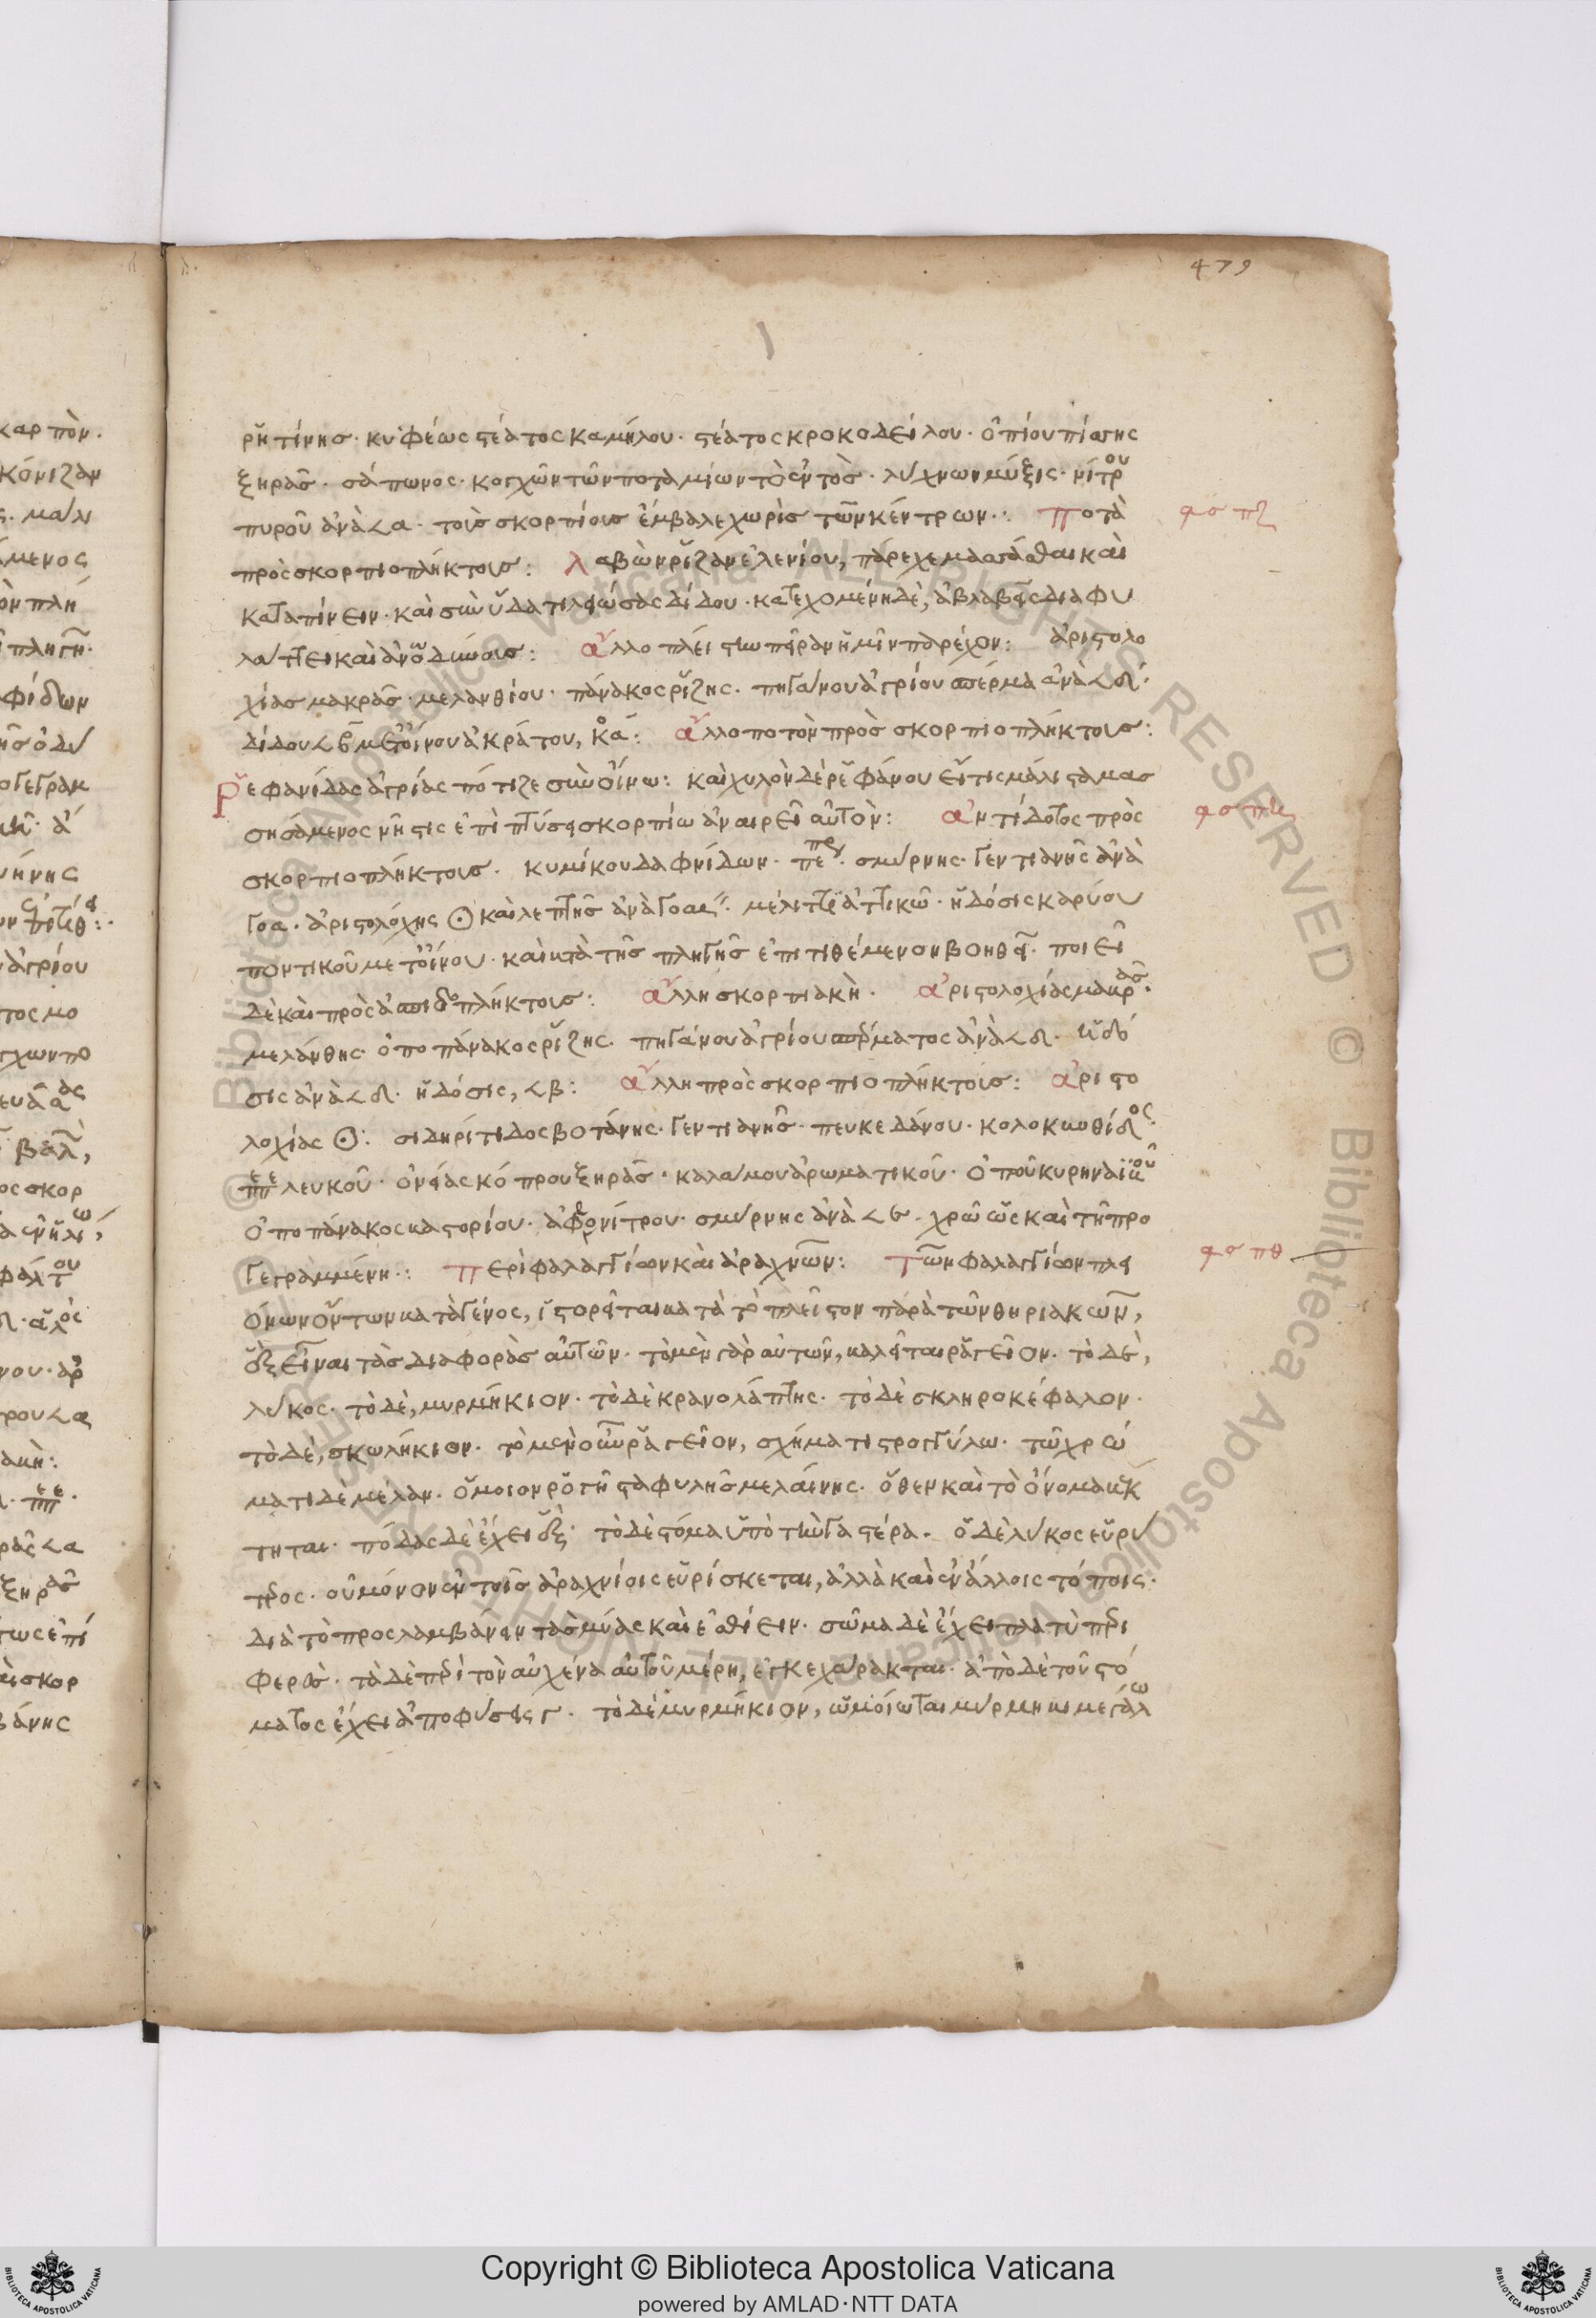 479
ρητίνης · κυφέως στέατος καμήλου · στέατος κροκοδείλου · ὀπίου πίσσης
ξηρᾶς · σάπωνος · κογχῶν τῶν ποταμίων τὸ ἐντὸς · λύχνων μύξης · νίτρου
πυροῦ ἀνὰ 𐅻 α · τοὺς σκορπίους ἔμβαλε χωρὶς τῶν κέντρων : ποτὰ
πρὸς σκορπιοπλήκτους : λαβὼν ῥίζαν ἑλενίου, πάρεχε μασᾶσθαι καὶ
καταπίνειν · καὶ σὺν ὕδατι λειώσας δίδου · κατεχομένη δὲ, ἀβλαβεῖς διαφυ
λάττει καὶ ἀνωδύνους : ἄλλο πλείστην πεῖραν ἡμῖν παρέχον : ἀριστολο
χίας μακρᾶς · μελανθίου · πάνακος ῥίζης · πηγάνου ἀγρίου σπέρμα ἀνὰ 𐅻 δ ·
δίδου 𐅻 β μετ οἴνου ἀκράτου, κο α : ἄλλο ποτὸν πρὸς σκορπιοπλήκτους :
Ῥεφανίδας ἀγρίας πότιζε σὺν οἴνω : καὶ χυλὸν δὲ ῥεφάνου εἴ τις μάλιστα μασ
σησάμενος νῆστις ἐπιπτύσει σκορπίω ἀναιρεῖ αὐτὸν : ἀντίδοτος πρὸς
σκορπιοπλήκτους · κυμίνου δαφνίδων · πεπερ · σμύρνης · γεντιανῆς ἀνὰ
γο α · ἀριστολόχης καὶ λεπτῆς ἀνὰ γο α · μέλιτι ἀττικῶ · ἡ δόσις καρύου
ποντικοῦ μετ οἴνου · καὶ κατὰ τῆς πληγῆς ἐπιτιθέμενον βοηθεῖ · ποιεῖ
δὲ καὶ πρὸς ἀσπιδοπλήκτους : ἄλλη σκορπιακὴ · ἀριστολοχίας μακρᾶς ·
μελάνθης · ὀποπάνακος ῥίζης · πηγάνου ἀγρίου σπέρματος ἀνὰ 𐅻 δ · ἡ δό
σις ἀνὰ 𐅻 δ · ἡ δόσις, 𐅻 β : ἄλλη πρὸς σκορπιοπλήκτους : ἀριστο
λοχίας : σιδηρίτιδος βοτάνης · γεντιανῆς · πευκεδάνου · κολοκυνθίδος ·
πεπε λευκοῦ · ὀνείας κόπρου ξηρᾶς · καλάμου ἀρωματικοῦ · ὀποῦ κυρηναϊκοῦ
ὀποπάνακος καστορίου · ἀφρονίτρου · σμύρνης ἀνὰ 𐅻 · χρῶ ὡς καὶ τῆ προ
γεγραμμένη : περὶ φαλαγγίων καὶ ἀραχνῶν : τῶν φαλαγγίων πλει
όνων ὄντων κατὰ γένος, ἱστορεῖται κατὰ τὸ πλεῖστον παρὰ τῶν θηριακῶν,
ἓξ εἶναι τὰς διαφορὰς αὐτῶν · τὸ μὲν γὰρ αὐτῶν, καλεῖται ῥάγειον · τὸ δὲ,
λύκος · τὸ δὲ, μυρμήκιον · τὸ δὲ κρανολάπτης · τὸ δὲ σκληροκέφαλον ·
τὸ δὲ, σκωλήκιον · τὸ μὲν οὖν ῥάγειον, σχήματι στρογγύλω · τῶ χρώ
ματι δὲ μέλαν · ὅμοιον ῥογῆ σταφυλῆς μελαίνης · ὅθεν καὶ τὸ ὄνομα κέκ
τηται · πόδας δὲ ἔχει ἓξ · τὸ δὲ στόμα ὑπὸ τὴν γαστέρα · ὁ δὲ λύκος εὐρύ
τερος · οὐ μόνον ἐν τοῖς ἀραχνίοις εὑρίσκεται, ἀλλὰ καὶ ἐν ἄλλοις τόποις ·
διὰ τὸ προσλαμβάνειν τὰς μύας καὶ ἐσθίειν · σῶμα δὲ ἔχει πλατὺ περι
φερὲς · τὰ δὲ περὶ τὸν αὐχένα αὐτοῦ μέρη, ἐγκεχάρακται · ἀπὸ δὲ τοῦ στό
ματος ἔχει ἀποφύσεις γ · τὸ δὲ μυρμήκιον, ὡμοίωται μύρμηκι μεγάλω
Copyright © Biblioteca Apostolica Vaticana
powered by AMLAD·NTT DATA